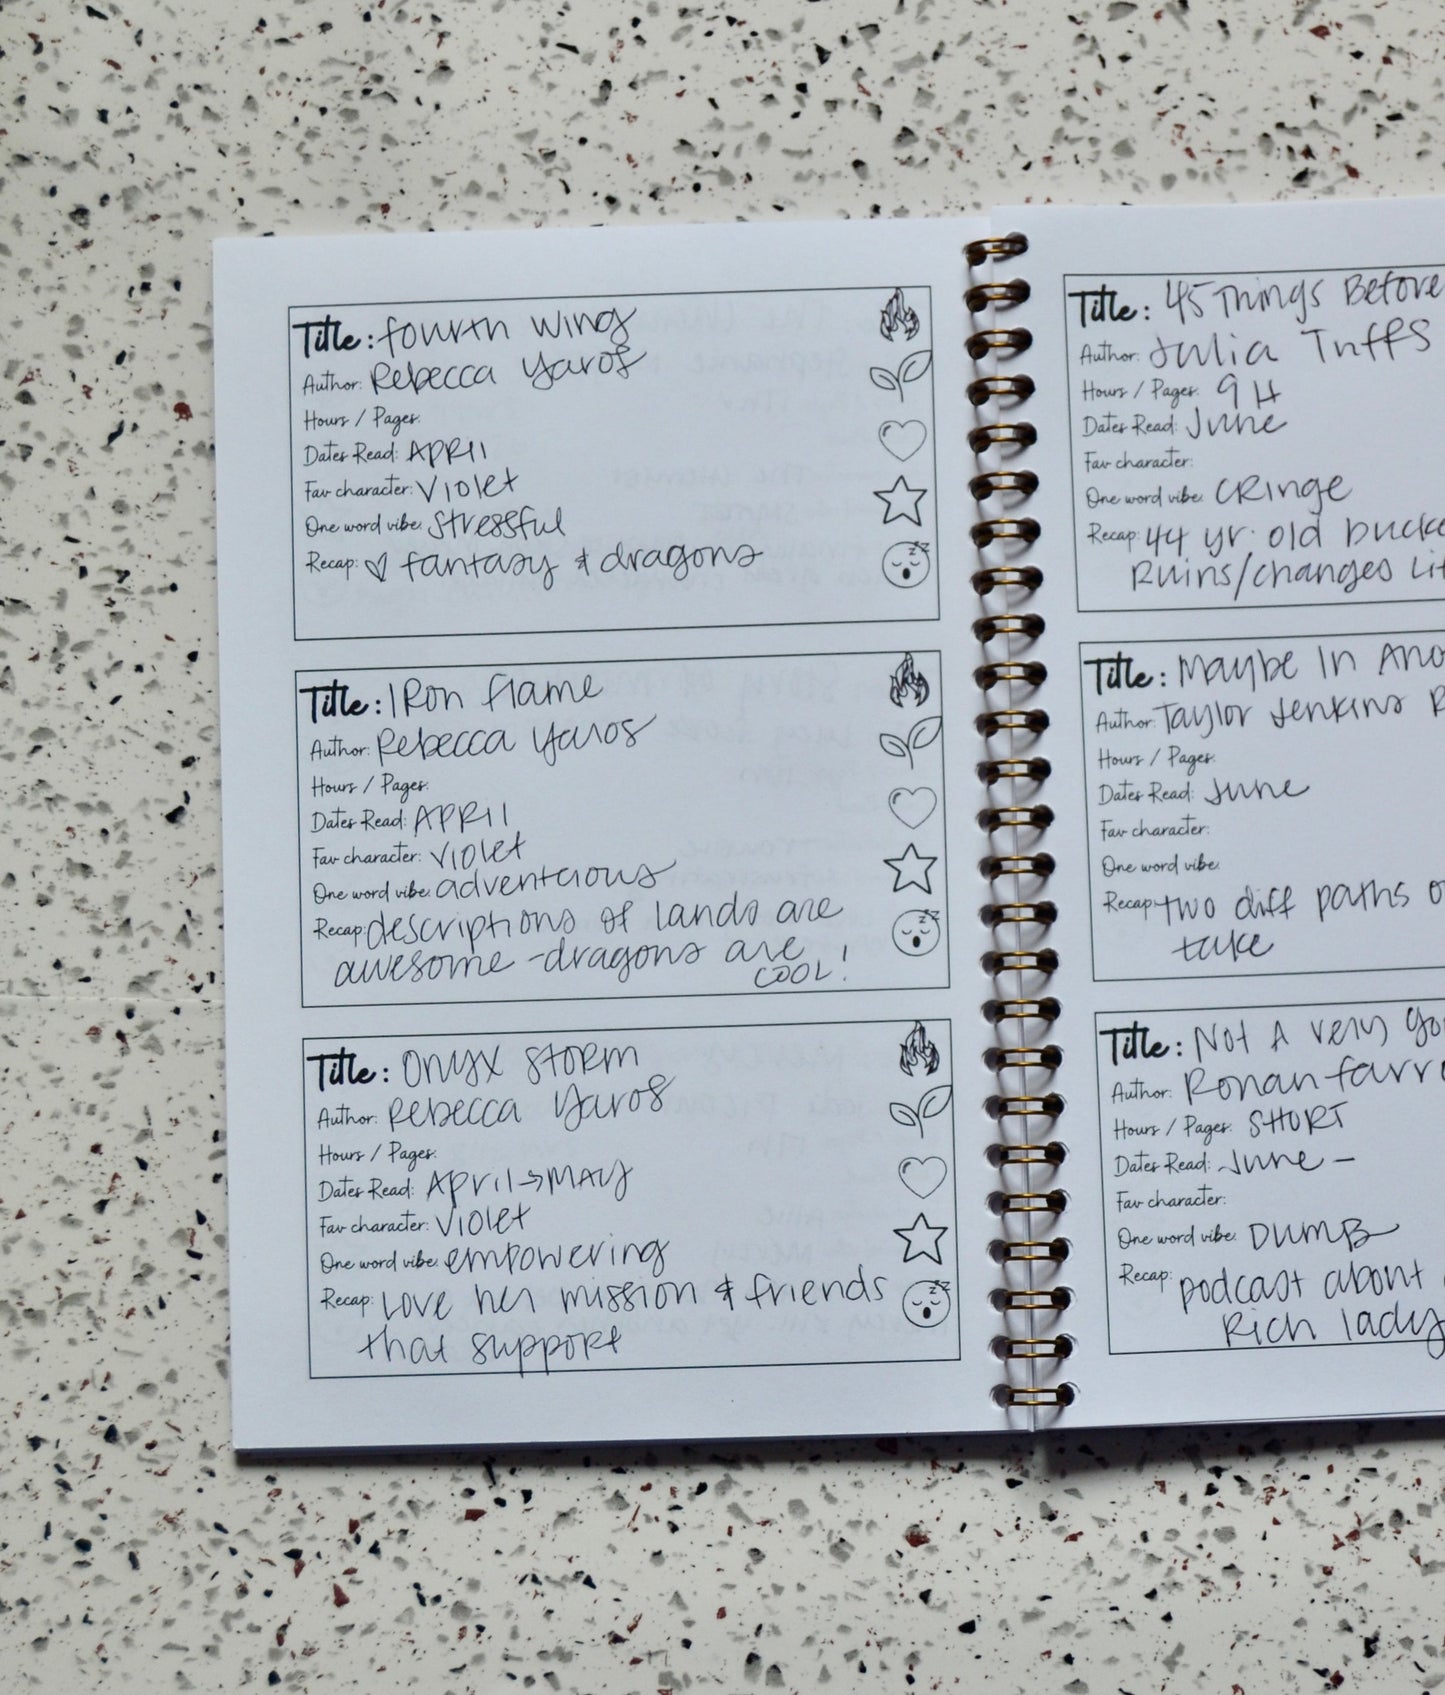 Title: fourth wing
Author: Rebecca Yaros
Hours / Pages:
Dates Read: APRIL
Fav character: Violet
One word vibe: stressful
Recap: ♡ fantasy & dragons
Title: IRon flame
Author: Rebecca Yaros
Hours / Pages:
Dates Read: APRIL
Fav character: Violet
One word vibe: adventurous
Recap: descriptions of lands are
awesome - dragons are
COOL!
Title: Onyx STORM
Author: Rebecca Yaros
Hours / Pages:
Dates Read: April → MAY
Fav character: Violet
One word vibe: empowering
Recap: Love her mission & friends
that support
Title: 45 Things Before
Author: Julia Tuffs
Hours / Pages: 9 H
Dates Read: June
Fav character:
One word vibe: CRinge
Recap: 44 yr. old
Ruins/changes
Title: Maybe In
Author: Taylor Jenkins
Hours / Pages:
Dates Read: June
Fav character:
One word vibe:
Recap: two diff paths
take
Title: Not A very
Author: Ronan
Hours / Pages: SHORT
Dates Read: June -
Fav character:
One word vibe: DUMB
Recap: podcast about
Rich lady